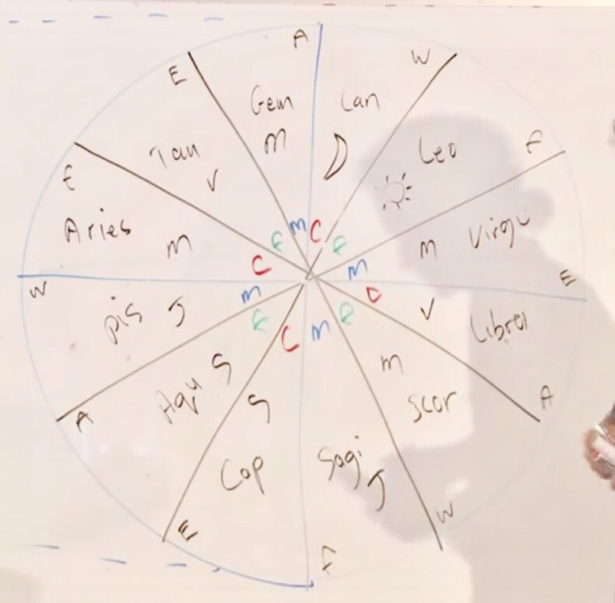 A
W
E
Gem
Can
m
Tau
V
Leo
F
E
Aries
m
m
Virgo
m
C
F
F
C
m
W
E
m
C
pis
J
V
Libra
F
C
m
F
m
Aqu
S
S
Scor
A
A
Cap
Sagi
J
E
W
F